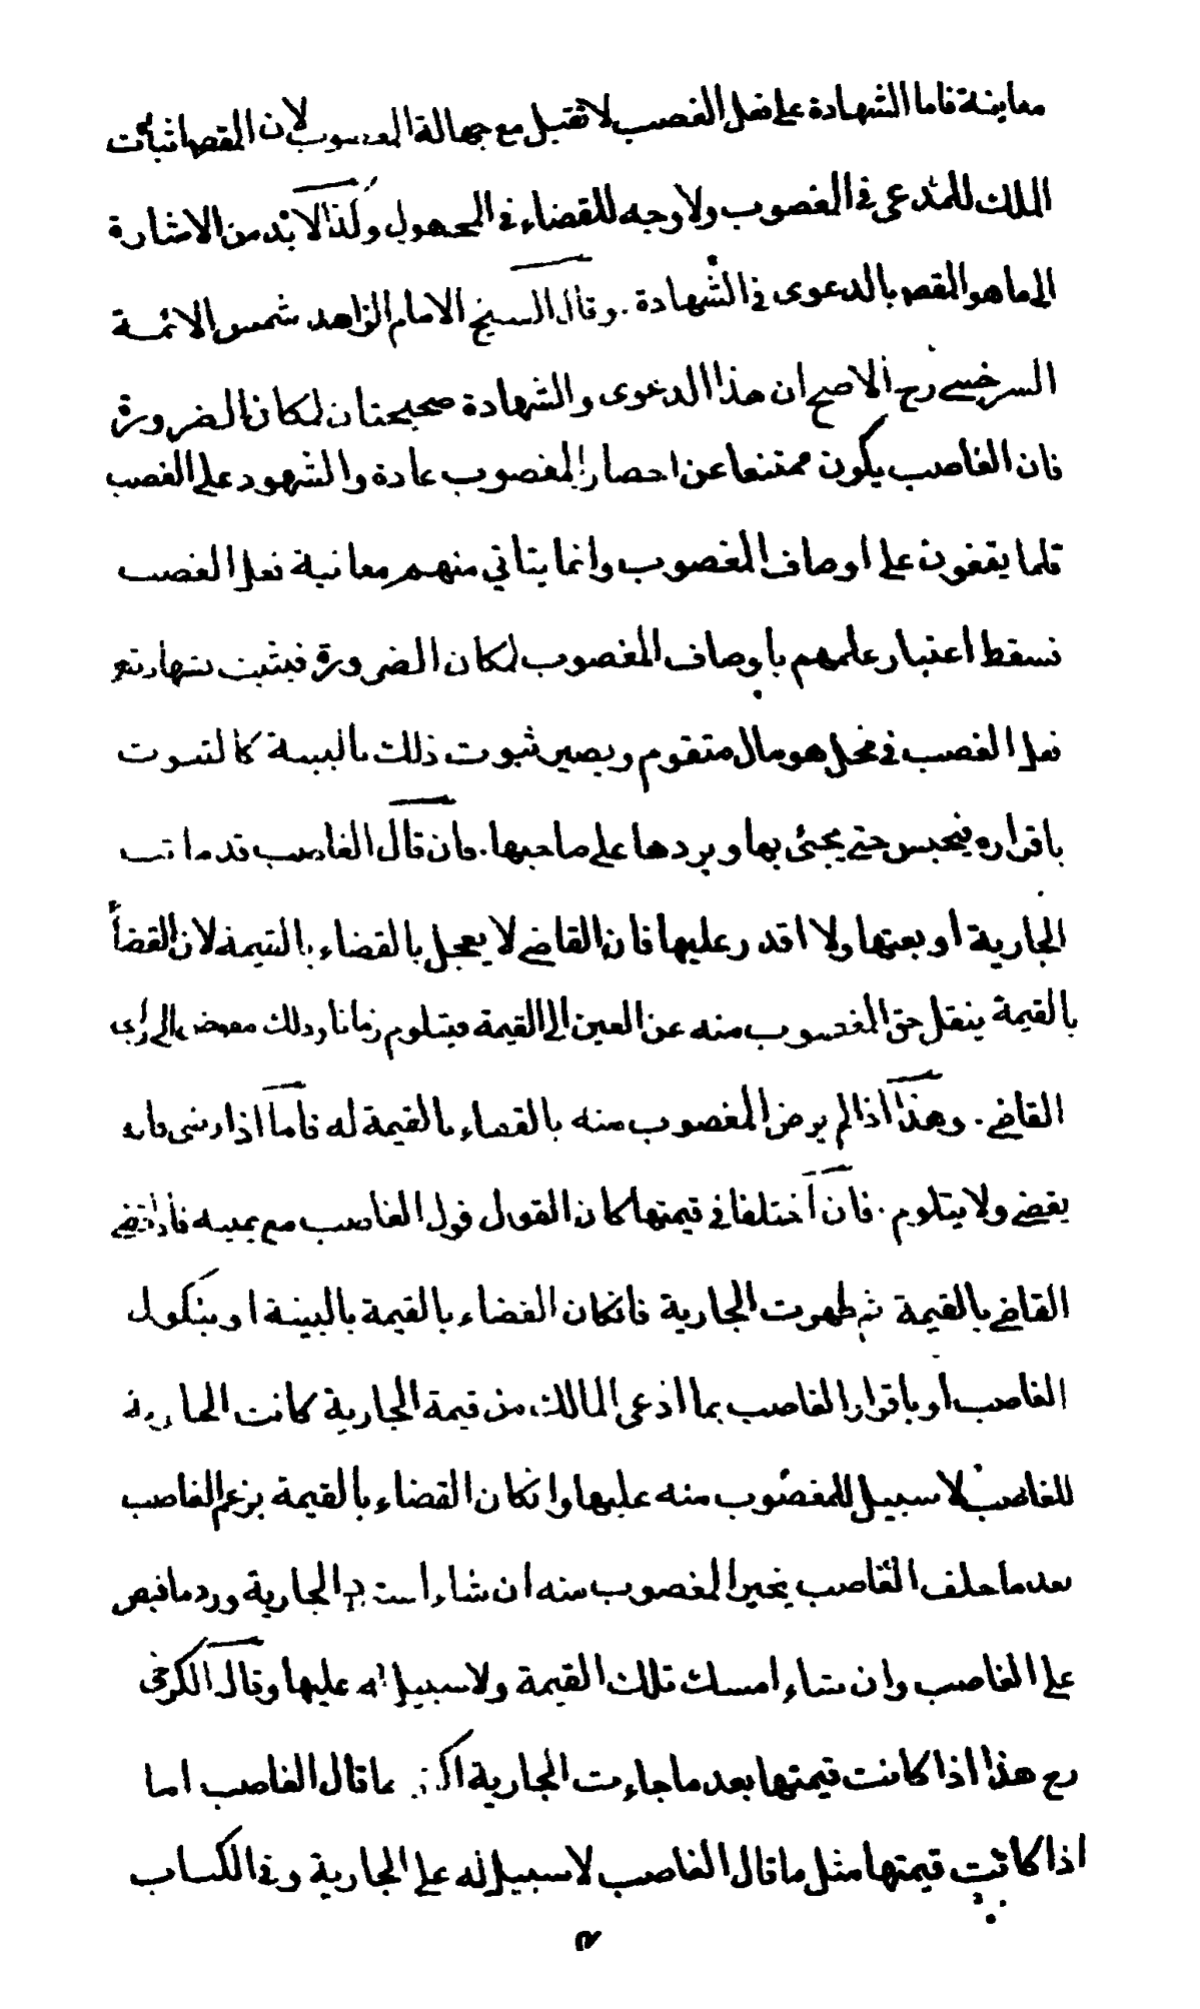 معاينة فاما الشهادة على فعل الغصب لا تقبل مع جهالة المغصوب لان المقص اثبات
الملك للمدعى فى المغصوب ولا وجه للقضاء فى المجهول وكذا لا بد من الاشارة
الى ما هو المقص بالدعوى فى الشهادة . وقال الشيخ الامام الزاهد شمس الائمة
السرخسے رح الاصح ان هذا الدعوى والشهادة صحيحتان لمكان الضرورة
فان الغاصب يكون ممتنعا عن احضار المغصوب عادة والشهود على الغصب
قلما يقفون على اوصاف المغصوب وانما يتاتي منهم معانية فعل الغصب
فسقط اعتبار علمهم باوصاف المغصوب لمكان الضرورة فيثبت بشهادتهم
فعل الغصب فى محل هو مال متقوم ويصير ثبوت ذلك بالبينة كالثبوت
باقراره فيحبس حتے يجئى بها ويردها على صاحبها . فان قال الغاصب قد ماتت
الجارية او بعتها ولا اقدر عليها فان القاضے لا يعجل بالقضاء بالقيمة لان القضأ
بالقيمة ينقل حق المغصوب منه عن العين الى القيمة فيتلوم زمانا وذلك مفوض الى راى
القاضے . وهذا اذا لم يرض المغصوب منه بالقضاء بالقيمة له فاما اذا رضى فانه
يقضے ولا يتلوم . فان اختلفا فى قيمتها كان القول قول الغاصب مع يمينه فاذا قضے
القاضے بالقيمة ثم ظهرت الجارية فانكان القضاء بالقيمة بالبينة او بنكول
الغاصب او باقرار الغاصب بما ادعى المالك من قيمة الجارية كانت الجارية
للغاصب لا سبيل للمغصوب منه عليها وانكان القضاء بالقيمة بزعم الغاصب
بعد ما حلف الغاصب يخير المغصوب منه ان شاء استرد الجارية ورد ما قبض
على الغاصب وان شاء امسك تلك القيمة ولا سبيل له عليها وقال الكرخى
رح هذا اذا كانت قيمتها بعد ما جاءت الجارية اكثر مما قال الغاصب اما
اذا كانت قيمتها مثل ما قال الغاصب لا سبيل له على الجارية وفى الكتاب